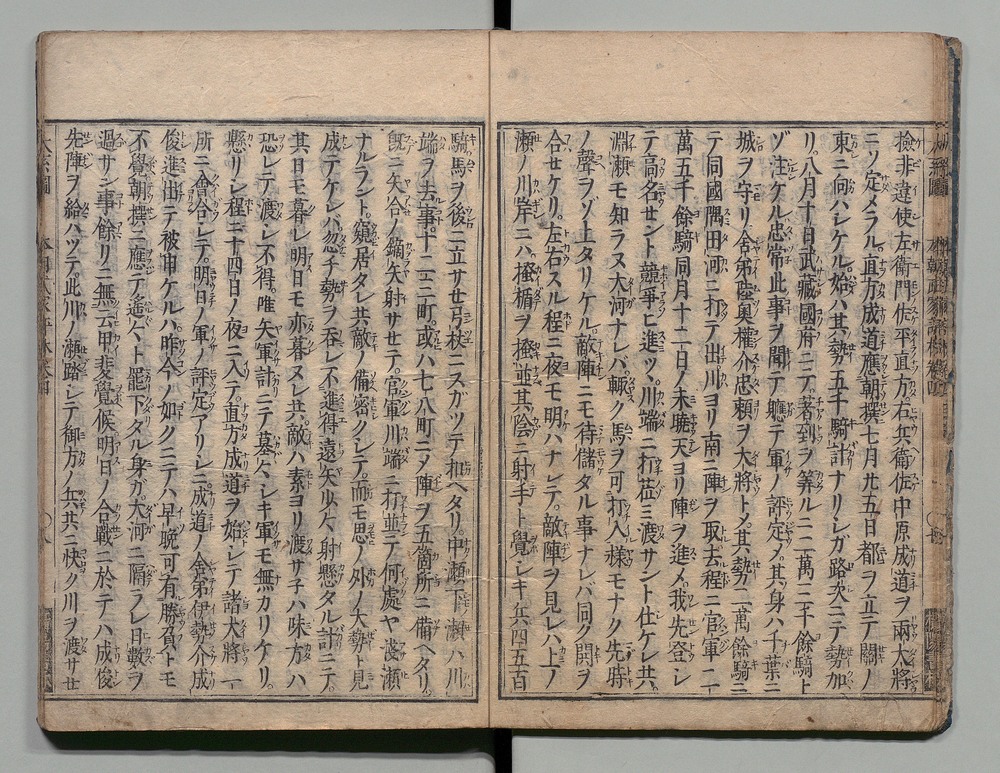 檢非違使左衛門佐平直方右兵衛佐中原成道ヲ兩大將
ニソ定メラル直方成道應朝撰七月廿五日都ヲ立テ關ノ
東ニ向ハレケル始ハ其勢五千騎計ナリシガ路次ニテ勢加
リ八月十日武藏國府ニテ著到ヲ算ルニ二萬二千餘騎ト
ゾ注ケル忠常此事ヲ聞テ聽テ軍ノ評定ヲ其身ハ千葉ニ
城ヲ守リ舍弟陸奥權介忠頼ヲ大將トメ其勢二萬餘騎ニ
テ同國隅田河ニ打テ出川ヨリ南ニ陣ヲ取去程ニ官軍二
萬五千餘騎同月十二日ノ未曉天ヨリ陣ヲ進メ我先登シ
テ高名セント競爭ヒ進ツヽ川端ニ打莅三渡サント仕ケレ共
淵瀬モ知ラヌ大河ナレバ輙ク馬ヲ可打入樣モナク先時
ノ聲ヲゾ上タリケル敵陣ニモ待儲タル事ナレバ同ク鬨ヲ
合セケリ左右スル程ニ夜モ明ハナレテ敵陣ヲ見レハ上ノ
瀬ノ川岸ニハ搔楯ヲ搔並其陰ニ射手ト覺シキ兵四五百
騎馬ヲ後ニ立サセ弓杖ニスガツテ扣ヘタリ中瀬下瀬ハ川
端ヲ去事十二三町或ハ七八町ニメ陣ヲ五箇所ニ備ヘタリ
既ニ矢合ノ鏑矢射サセテ官軍川端ニ打並テ何處ヤ淺瀬
ナルラント窺居タレ共敵ノ備密クシテ而モ思ノ外ノ大勢ト見
成テケレバ忽チ勢ヲ呑レ不進得遠矢少々射懸タル計ニテ
其日モ暮レ明日モ亦暮ヌレ共敵ハ素ヨリ渡サ子ハ味方ハ
恐レテ渡シ不得唯矢軍計ニテ墓々シキ軍モ無カリケリ
懸リシ程ニ十四日ノ夜ニ入テ直方成道ヲ始シテ諸大將一
所ニ會合シテ明日ノ軍ノ評定アリシニ成道ノ舍弟伊勢介成
俊進出テ被申ケルハ昨今ノ如クニテハ早晩可有勝負トモ
不覺朝撰ニ應テ遙々ト罷下タル身ガ大河ニ隔ラレ日數ヲ
過サン事餘リニ無云甲斐覺候明日ノ合戰ニ於テハ成俊
先陣ヲ給ハツテ此川ノ瀬踏シテ御方ノ兵共ニ快ク川ヲ渡サセ